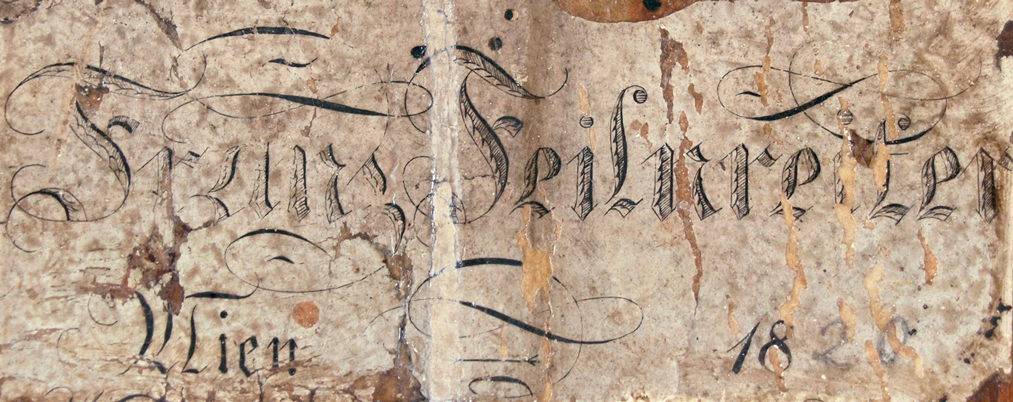 Franz Feilnreiter
Wien 1820